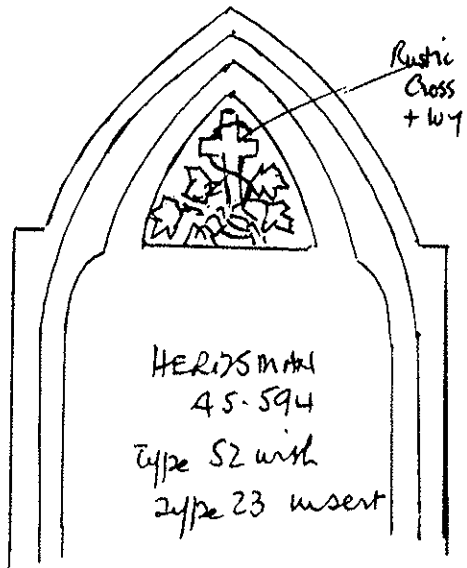 Rustic
Cross
+ Ivy
HERDSMAN
45.594
Type 52 with
Type 23 insert